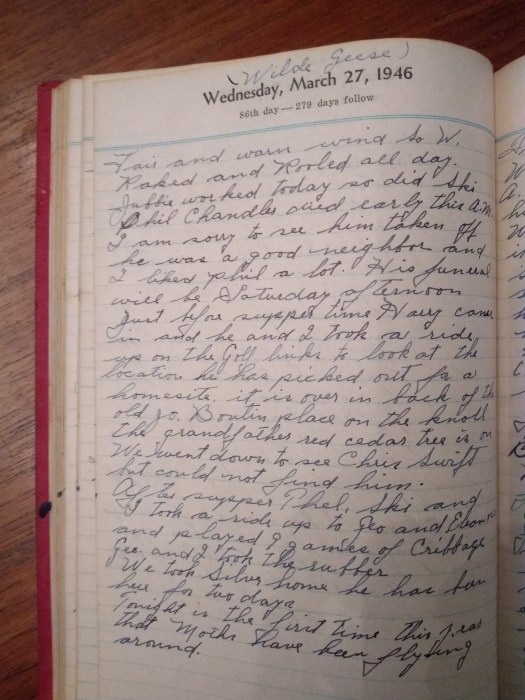 (Wilde Geese)
Wednesday, March 27, 1946
86th day — 279 days follow
Fair and warm wind So W.
Raked and Rooled all day.
Jubbie worked today so did Ski
Phil Chandler died early this A.M.
I am sorry to see him taken off
he was a good neighbor and
I liked phil a lot. His funeral
will be Saturday afternoon
Just before supper time Harry came
in and he and I took a ride
up on the Golf links to look at the
location he has picked out for a
homesite. it is over in back of the
old Jo. Boutin place on the knoll
the grandfather red cedar tree is on
We went down to see Chris Swift
but could not find him.
After supper Thel, Ski and
I took a ride up to Geo and Eleanor
and played 9 games of Cribbage
Geo. and I took the rubber
We took Silver home he has been
here for two days
Tonight is the first time this year
that Moths have been flying
around.